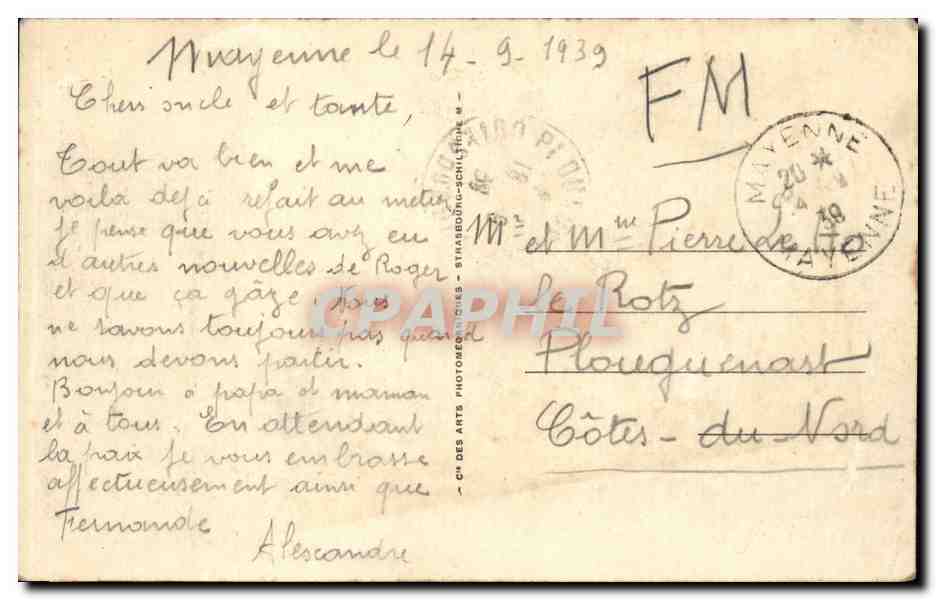 Mayenne le 14-9-1939
Chers oncle et tante,
Tout va bien et me
voila deja refait au metier
je pense que vous avez eu
d'autres nouvelles de Roger
et que ça gâze. Nous
ne savons toujours pas quand
nous devons partir.
Bonjour à papa et maman
et à tous. En attendant
la paix je vous embrasse
affectueusement ainsi que
Fernande
Alexandre
Cie DES ARTS PHOTOMÉCANIQUES - STRASBOURG-SCHILTIGHEIM
FM
MAYENNE
20 *
39
MAYENNE
M et Mme Pierre Le
le Rotz
Plouguenast
Côtes-du-Nord
CPAPHIL